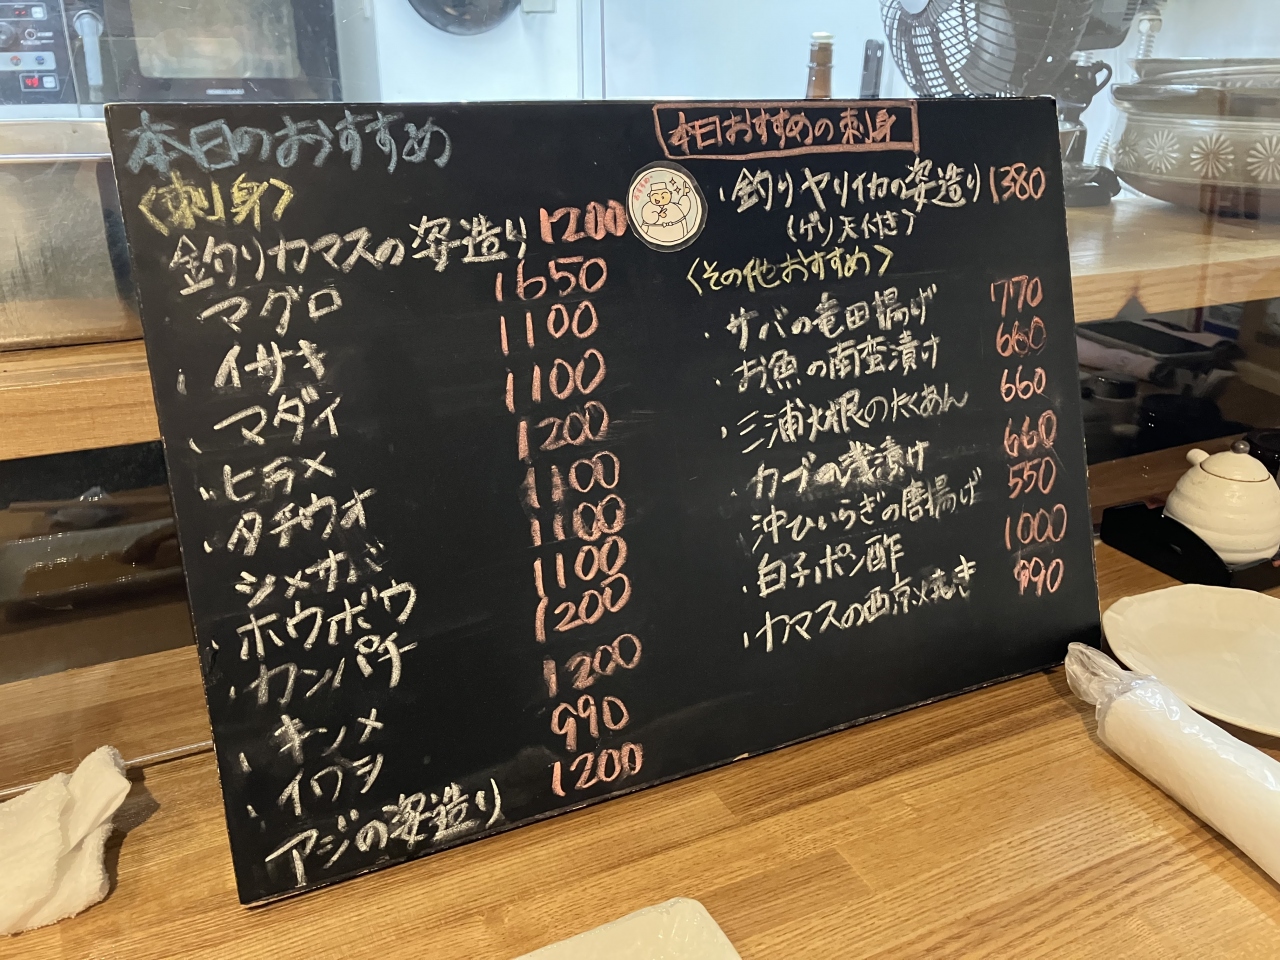 本日のおすすめ
〈刺身〉
釣りカマスの姿造り 1200
マグロ 1650
・イサキ 1100
・マダイ 1100
・ヒラメ 1200
・タチウオ 1100
シメサバ 1100
・ホウボウ 1100
・カンパチ 1200
・キンメ 1200
・イワシ 990
アジの姿造り 1200
本日おすすめの刺身
・釣りヤリイカの姿造り 1380
(ゲソ天付き)
〈その他おすすめ〉
・サバの竜田揚げ 770
・お魚の南蛮漬け 660
・三浦大根のたくあん 660
・カブの浅漬け 660
沖ひいらぎの唐揚げ 550
・白子ポン酢 1000
・カマスの西京焼き 990